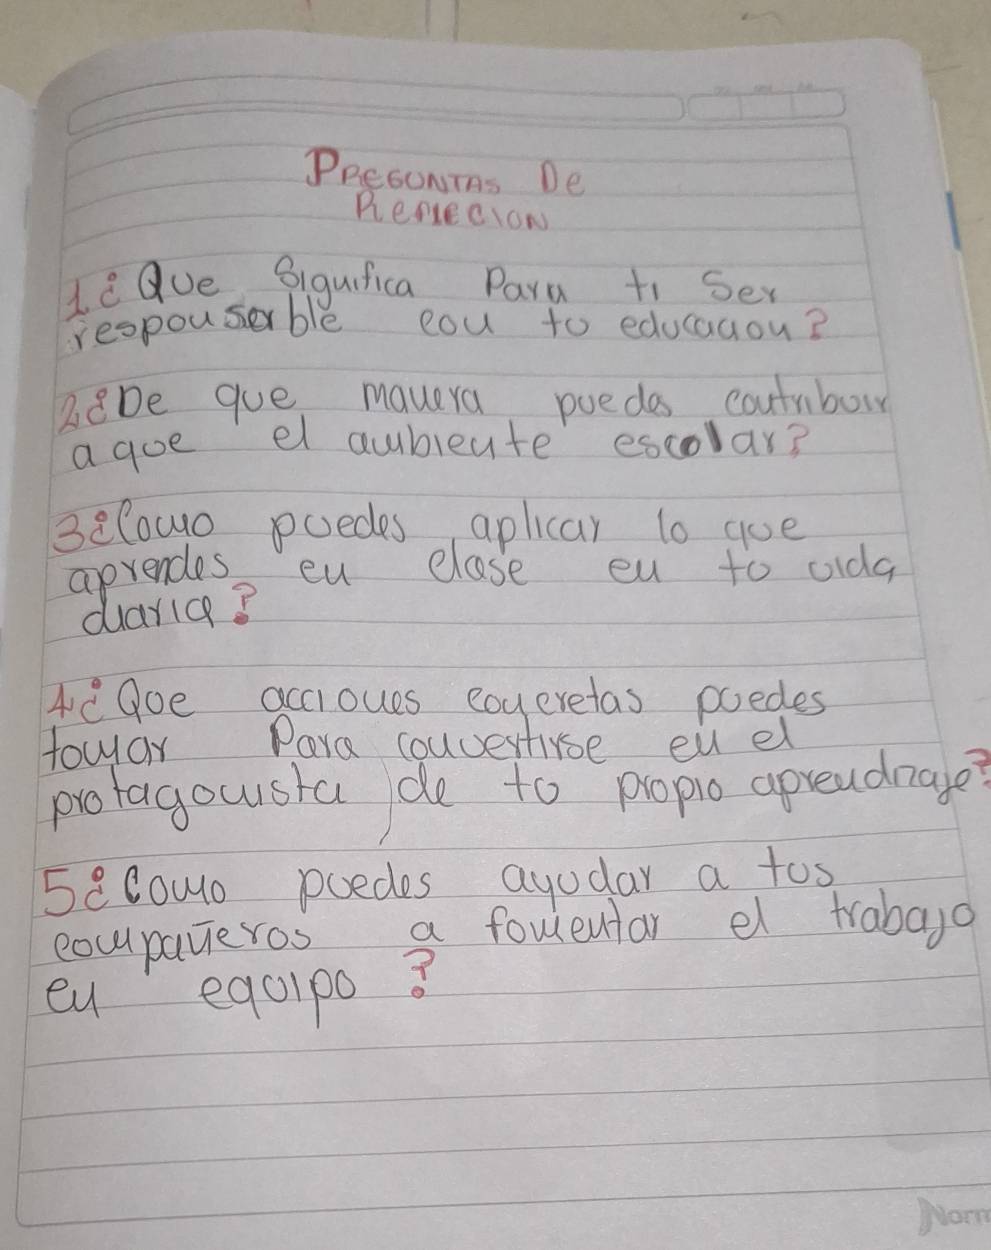 PREGUNTAS De
REFLECION
1.¿Que Significa Para ti Ser
responserble con tu educacion?
2¿De que manera puedes contribuir
a que el ambiente escolar?
3¿Como puedes aplicar lo que
aprendes en clase en tu vida
diaria?
4¿Que acciones concretas puedes
tomar Para convertirse en el
protagonista de tu propio aprendizaje?
5¿Como puedes ayudar a tus
compañeros a fomentar el trabajo
en equipo?
Norm